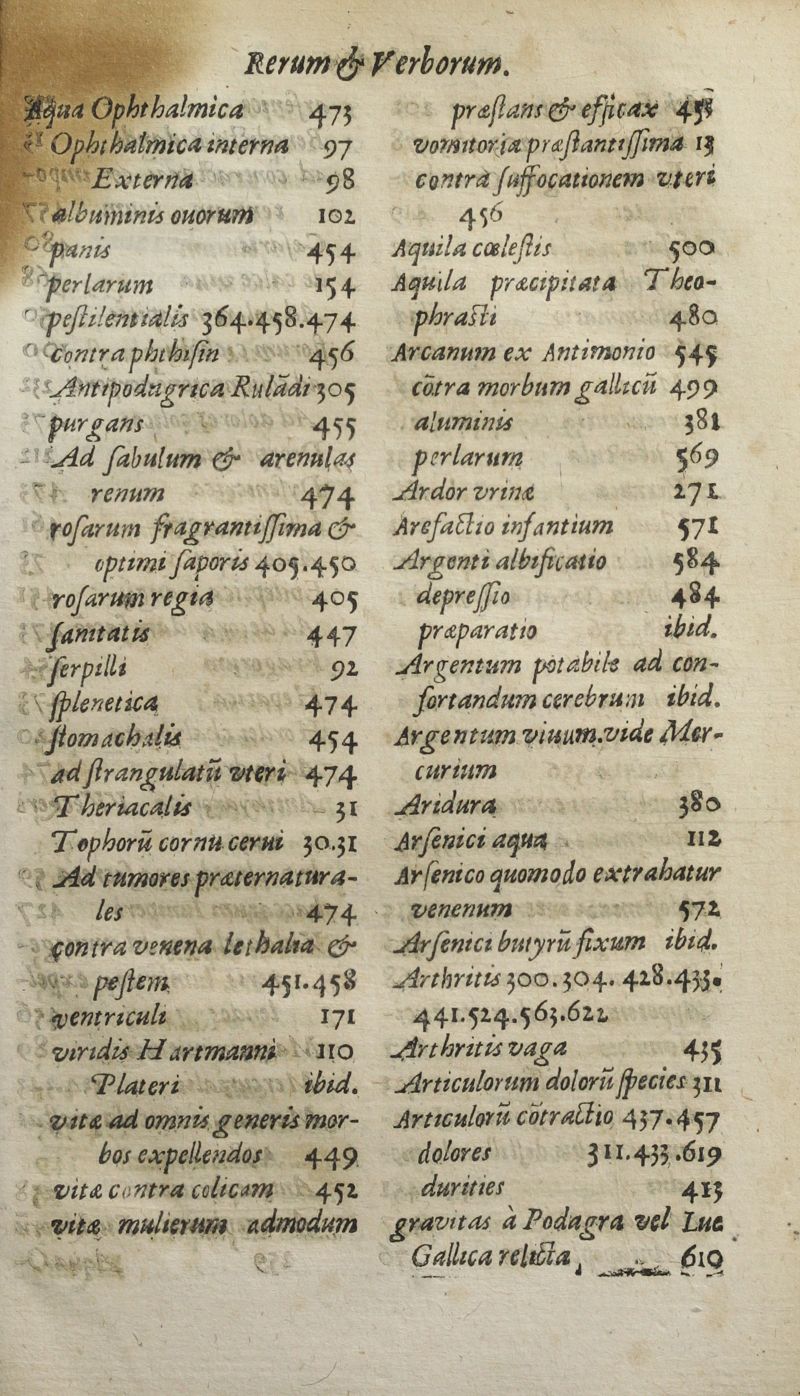 Rerum & Verborum.
Aqua Ophthalmica 473
Ophthalmica interna 97
Externa 98
albuminis ouorum 102
panis 454
perlarum 154
peſtilentialis 364.458.474
contra phthiſin 456
Antipodagrica Rulādi 305
purgans 455
Ad ſabulum & arenulas
renum 474
roſarum fragrantiſſima &
optimi ſaporis 405.450
roſarum regia 405
ſanitatis 447
ſerpilli 92
ſplenetica 474
ſtomachalis 454
ad ſtrangulatū vteri 474
Theriacalis 31
Tophorū cornu cerui 30.31
Ad tumores præternatura-
les 474
contra venena lethalia &
peſtem 451.458
ventriculi 171
viridis Hartmanni 110
Plateri ibid.
vitæ ad omnis generis mor-
bos expellendos 449
vitæ contra colicam 452
vitæ mulierum admodum
præſtans & efficax
vomitoria præſtantiſſima 13
contra ſuffocationem vteri
456
Aquila cœleſtis 500
Aquila præcipitata Theo-
phraſti 480
Arcanum ex Antimonio 545
cōtra morbum gallicū 499
aluminis 381
perlarum 569
Ardor vrinæ 271
Arefactio infantium 571
Argenti albificatio 584
depreſſio 484
præparatio ibid.
Argentum potabile ad con-
fortandum cerebrum ibid.
Argentum viuum.vide Mer-
curium
Aridura 380
Arſenici aqua 112
Arſenico quomodo extrahatur
venenum 572
Arſenici butyrū fixum ibid.
Arthritis 300.304.428.433.
441.524.563.622
Arthritis vaga 435
Articulorum dolorū ſpecies 311
Articulorū cōtractio 437.457
dolores 311.433.619
durities 413
gravitas à Podagra vel Lue
Gallica relicta, 610